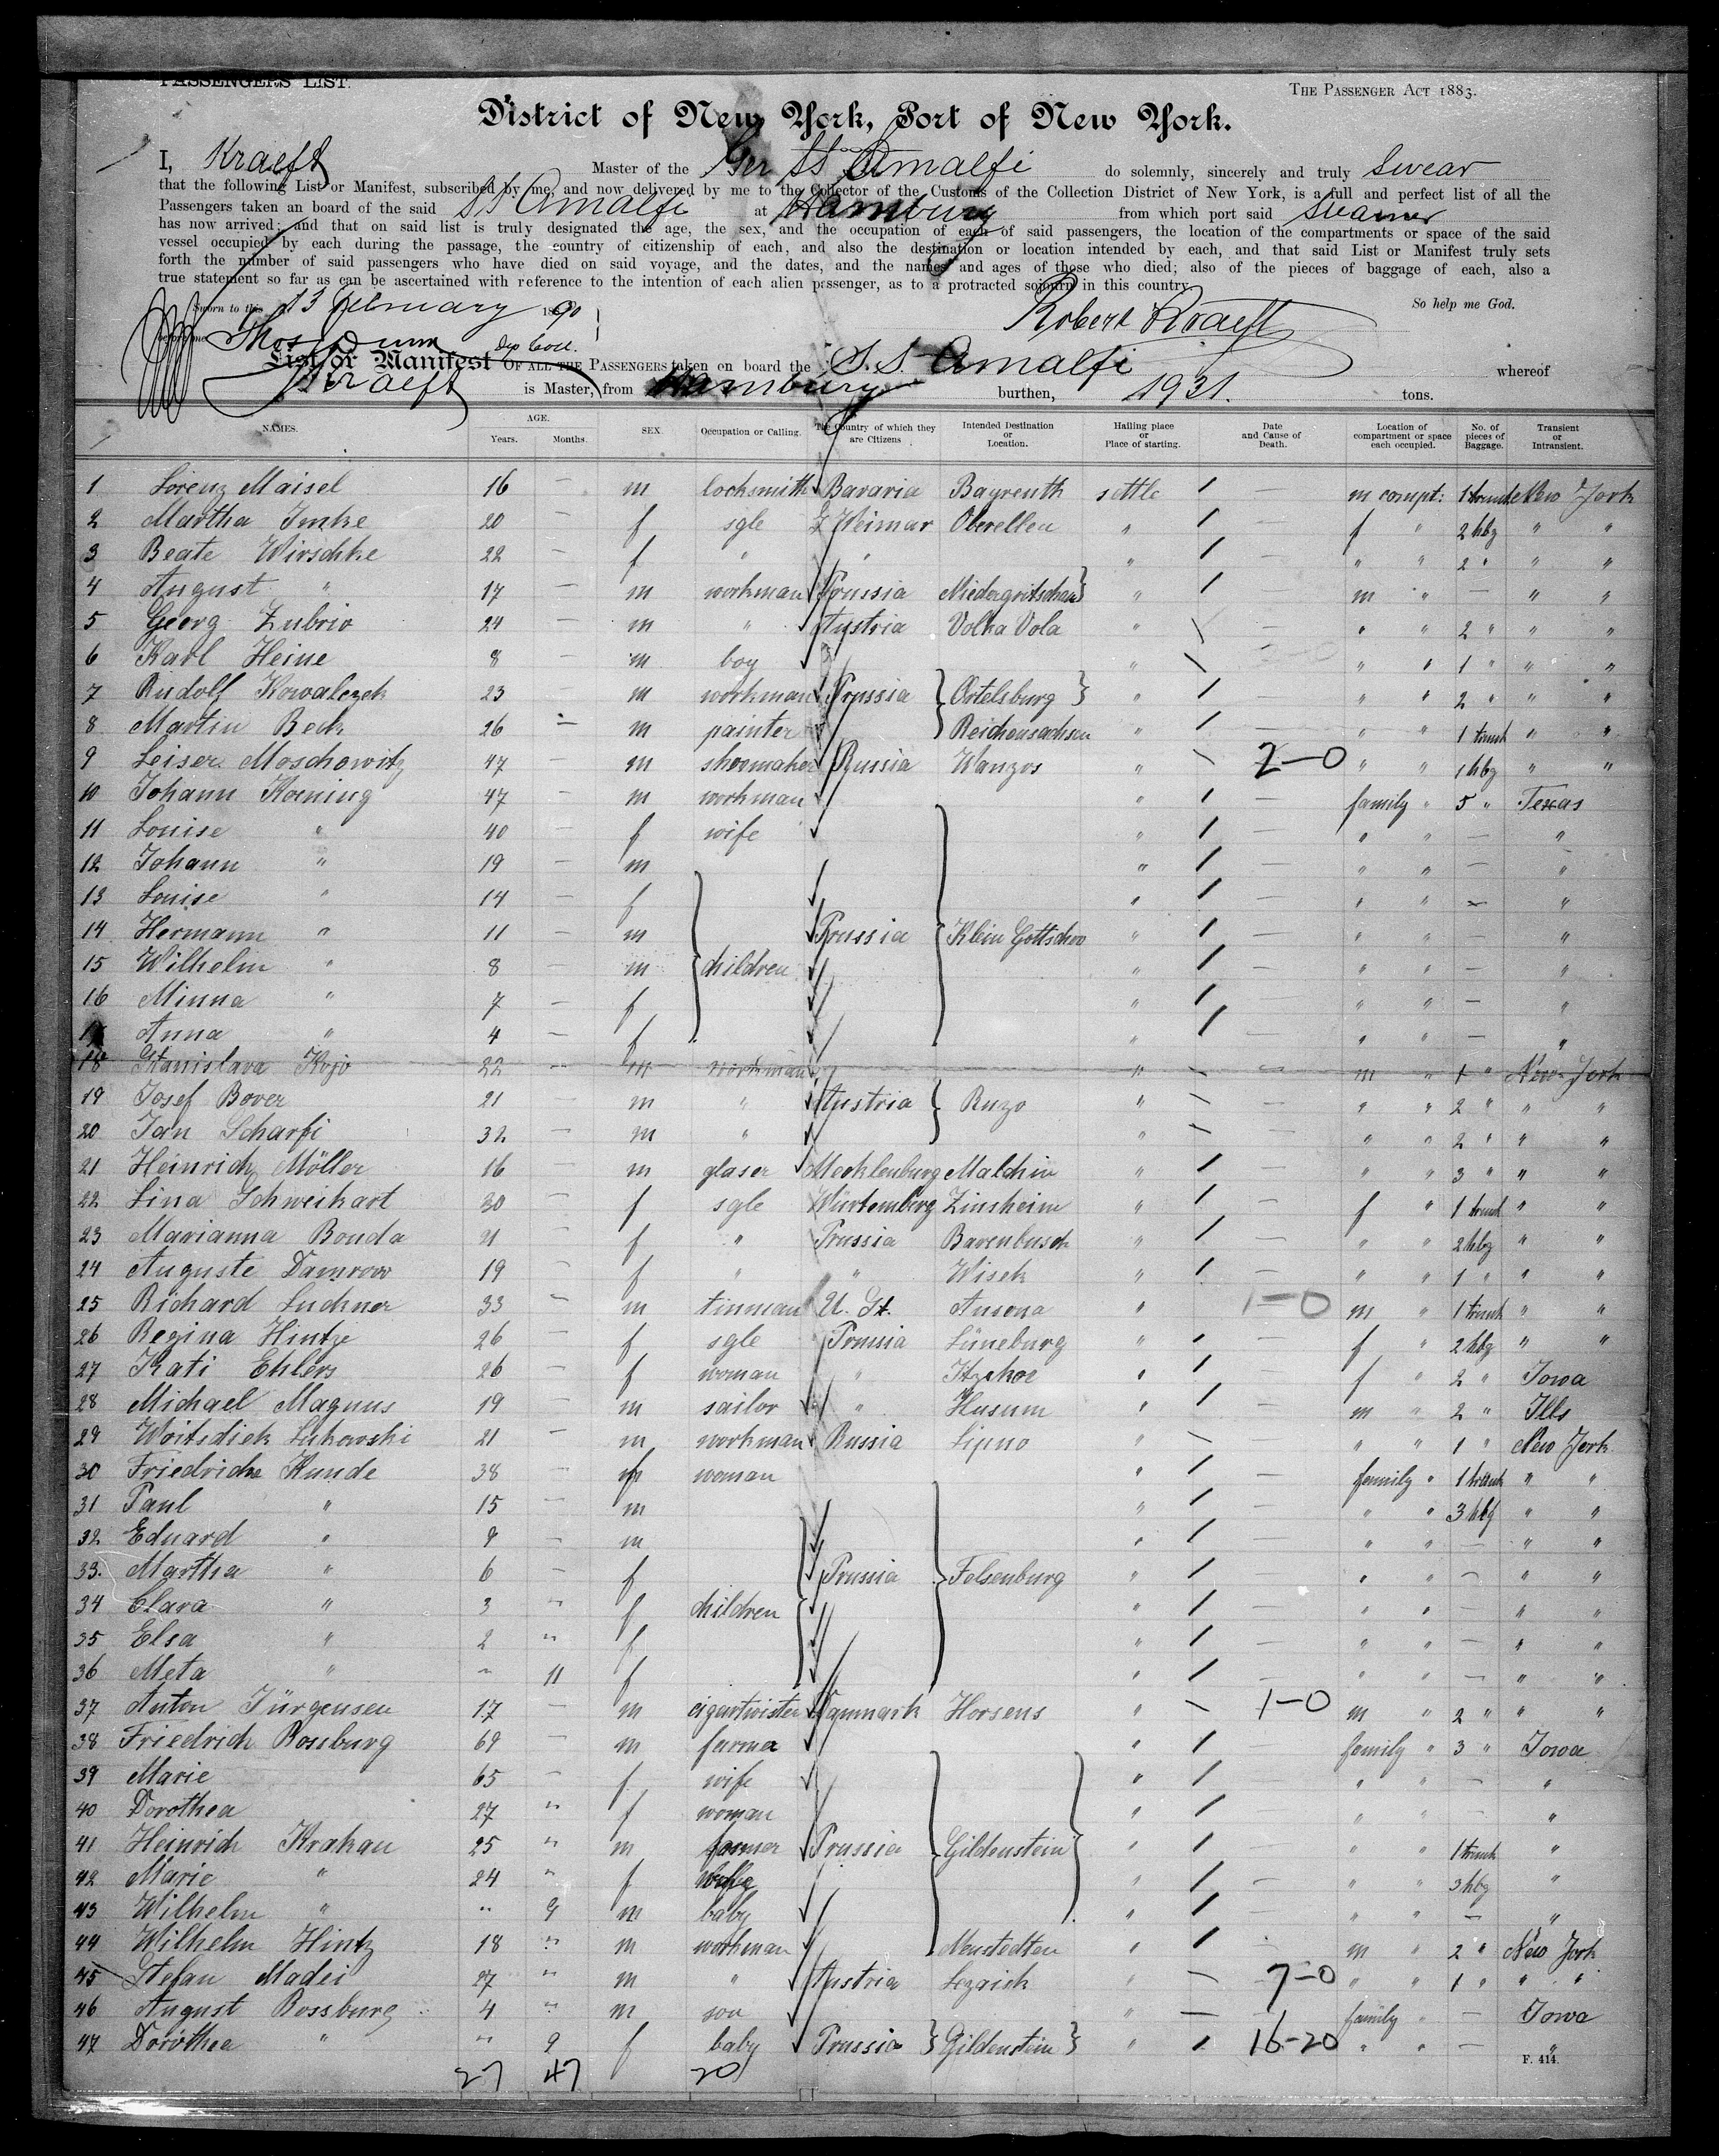 PASSENGERS LIST.
THE PASSENGER ACT 1883.
District of New York, Port of New York.
I, Kraeft Master of the Ger SS Amalfi do solemnly, sincerely and truly swear
that the following List or Manifest, subscribed by me, and now delivered by me to the Collector of the Customs of the Collection District of New York, is a full and perfect list of all the
Passengers taken an board of the said SS Amalfi at Hamburg from which port said steamer
has now arrived; and that on said list is truly designated the age, the sex, and the occupation of each of said passengers, the location of the compartments or space of the said
vessel occupied by each during the passage, the country of citizenship of each, and also the destination or location intended by each, and that said List or Manifest truly sets
forth the number of said passengers who have died on said voyage, and the dates, and the names and ages of those who died; also of the pieces of baggage of each, also a
true statement so far as can be ascertained with reference to the intention of each alien passenger, as to a protracted sojourn in this country.
Sworn to this 13 February 1890 So help me God.
before me Thos Dunn Dep Coll. Robert Kraeft
List or Manifest OF ALL THE PASSENGERS taken on board the S.S. Amalfi whereof
Kraeft is Master, from Hamburg burthen, 1931. tons.
NAMES. AGE. Years. Months. SEX. Occupation or Calling. The Country of which they are Citizens. Intended Destination or Location. Hailing place or Place of starting. Date and Cause of Death. Location of compartment or space each occupied. No. of pieces of Baggage. Transient or Intransient.
1 Lorenz Maisel 16 — m locksmith Bavaria Bayreuth settle / — m compt: 1 trunk New York
2 Martha Imke 20 — f sgle Weimar Oberellen " / — f " 2 hbg " "
3 Beate Wirschke 22 — f " " " / — " " 2 " " "
4 August " 17 — m workman Prussia Niedergritschen } " / — m " — " "
5 Georg Zubrio 24 — m " Austria Volka Vola " \ — " " 2 " " "
6 Karl Heine 8 — m boy " \ — " " 1 " " "
7 Rudolf Kowalczek 23 — m workman Prussia { Ortelsburg } " / — " " 2 " " "
8 Martin Beck 26 — m painter Reichensachsen " / — " " 1 trunk " "
9 Leiser Moschowitz 47 — m shoemaker Russia Wanzos " \ 2-0 " " 1 hbg " "
10 Johann Koening 47 — m workman " / — family " 5 " Texas
11 Louise " 40 — f wife " / — " " — "
12 Johann " 19 — m " / — " " — "
13 Louise " 14 — f " / — " " — "
14 Hermann " 11 — m Prussia { Klein Gottschow " / — " " — "
15 Wilhelm " 8 — m { children " / — " " — "
16 Minna " 7 — f " / — " " — "
17 Anna " 4 — f " / — " " — "
18 Stanislava Kojo 22 — m workman " \ — m " 1 " New York
19 Josef Bover 21 — m " Austria } Ruzo " \ — " " 2 " " "
20 Jan Scharfi 32 — m " " \ — " " 2 " " "
21 Heinrich Möller 16 — m glaser Mecklenburg Malchin " / — " " 3 " " "
22 Lina Schweikart 30 — f sgle Würtemberg Zinsheim " / — f " 1 trunk " "
23 Marianna Bonda 21 — f " Prussia Barenbusch " / — " " 2 hbg " "
24 Auguste Damrow 19 — f " " Wisek " / — " " 1 " " "
25 Richard Luckner 33 — m tinman U. St. Ansona " 1-0 m " 1 trunk " "
26 Regina Hintze 26 — f sgle Prussia Lüneburg " / — f " 2 hbg " "
27 Kati Ehlers 26 — f woman " Itzehoe " / — f " 2 " Iowa
28 Michael Magnus 19 — m sailor " Husum " / — m " 2 " Ills
29 Woitsdiek Lukowski 21 — m workman Russia Lipno " \ " " 1 " New York
30 Friedricke Kunde 38 — f woman " / — family " 1 trunk " "
31 Paul " 15 — m " / — " " 3 hbg " "
32 Eduard " 9 — m " / — " " — " "
33. Martha " 6 — f Prussia } Felsenburg " / — " " — " "
34 Clara " 3 " f children { " / — " " — " "
35 Elsa " 2 " f " / — " " — " "
36 Meta " " 11 f " / — " " — " "
37 Anton Jürgensen 17 — m cigartwister Danmark Horsens " \ 1-0 m " 2 " " "
38 Friedrich Rossburg 69 — m farmer " / — family " 3 " Iowa
39 Marie 65 — f wife " / — " " — "
40 Dorothea 27 " f woman " / — " " — "
41 Heinrich Krakau 25 " m farmer Prussia { Gildenstein } " / — " " 1 trunk "
42 Marie " 24 " f wife " / — " " 3 hbg "
43 Wilhelm " " 9 m baby " / — " " — "
44 Wilhelm Hintz 18 " m workman Neustedten " / m " 2 " New York
45 Stefan Madei 27 " m " Austria Lezaisk " — 7-0 " " 1 " " "
46 August Rossburg 4 " m son " — family " — Iowa
47 Dorothea " " 9 f baby Prussia } Gildenstein } " / 16-20 " " — "
27 47 20
F. 414.